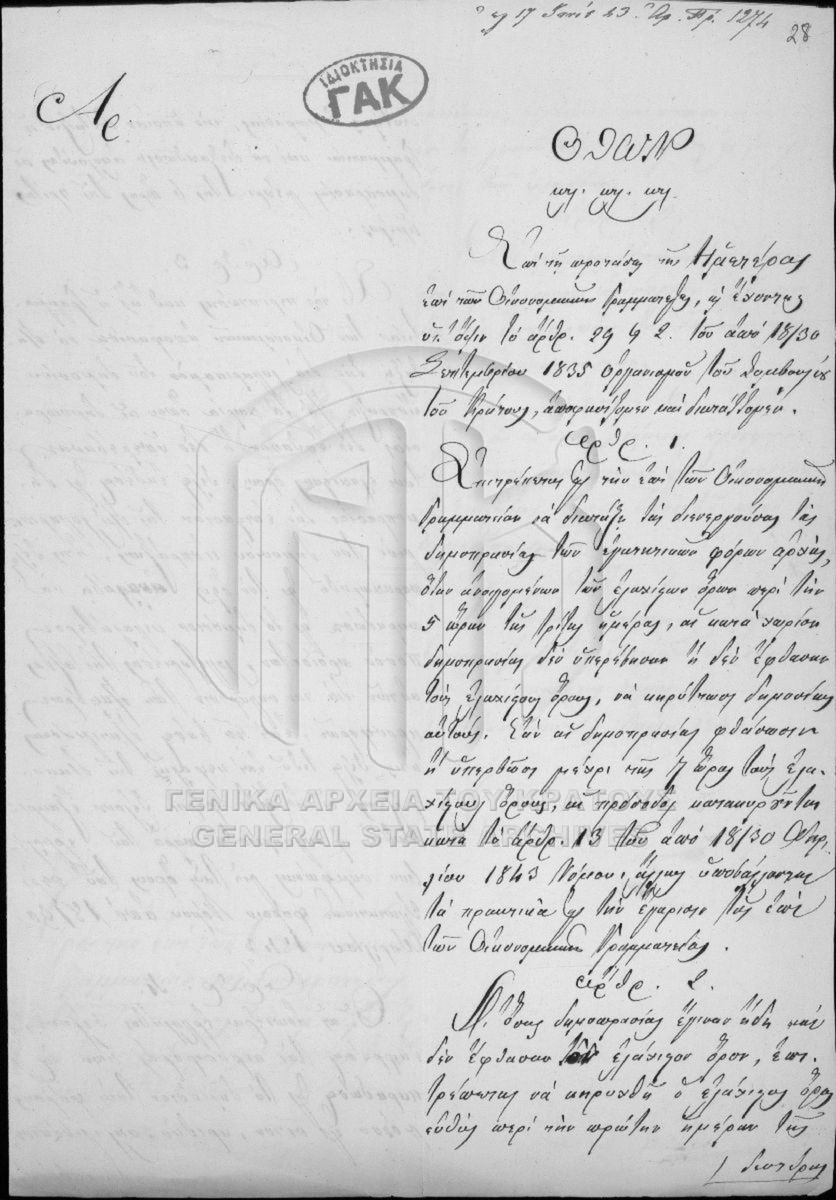 17 Ἰουν. 43. Ἀρ. Πρ. 1274
28
ΙΔΙΟΚΤΗΣΙΑ
ΓΑΚ
Ας
ΟΘΩΝ
κτλ. κτλ. κτλ.
Ἐπὶ τῇ προτάσει τῆς Ἡμετέρας
ἐπὶ τῶν Οἰκονομικῶν Γραμματείας, ἔχοντες
ὑπ' ὄψιν τὸ ἄρθρ. 29 § 2. τοῦ ἀπὸ 18/30
Σεπτεμβρίου 1835 ὀργανισμοῦ τοῦ Συμβουλίου
τοῦ Κράτους, ἀποφασίζομεν καὶ διατάττομεν.
ἄρθρ. 1.
Ἐπιτρέπεται εἰς τὴν ἐπὶ τῶν Οἰκονομικῶν
Γραμματείαν νὰ διατάξῃ τὰς διενεργούσας τὰς
δημοπρασίας τῶν ἐγγείων φόρων ἀρχάς,
ὅταν τῶν ἐλαχίστων ὅρων περὶ τὴν
5 ὥραν τῆς τρίτης ἡμέρας, αἱ κατὰ χωρίον
δημοπρασίαι δὲν ὑπερέβησαν ἢ δὲν ἔφθασαν
τοὺς ἐλαχίστους ὅρους, νὰ κηρύττωσι δημοσίως
αὐτούς. Ἐὰν αἱ δημοπρασίαι φθάσωσιν
ἢ ὑπερβῶσι μέχρι τῆς 7 ὥρας τοὺς ἐλα-
χίστους ὅρους, αἱ πρόσοδοι κατακυροῦνται
κατὰ τὸ ἄρθρ. 13 τοῦ ἀπὸ 18/30 Ἀπρι-
λίου 1843 Νόμου, ἄλλως ὑποβάλλονται
τὰ πρακτικὰ εἰς τὴν ἔγκρισιν τῆς ἐπὶ
τῶν Οἰκονομικῶν Γραμματείας.
ἄρθρ. 2.
Δι' ὅσας δημοπρασίας ἔγιναν ἤδη καὶ
δὲν ἔφθασαν τὸν ἐλάχιστον ὅρον, ἐπι-
τρέπεται νὰ κηρυχθῇ ὁ ἐλάχιστος ὅρος
εὐθὺς περὶ τὴν πρώτην ἡμέραν τῆς
δευτέρας
ΓΕΝΙΚΑ ΑΡΧΕΙΑ ΤΟΥ ΚΡΑΤΟΥΣ
GENERAL STATE ARCHIVES